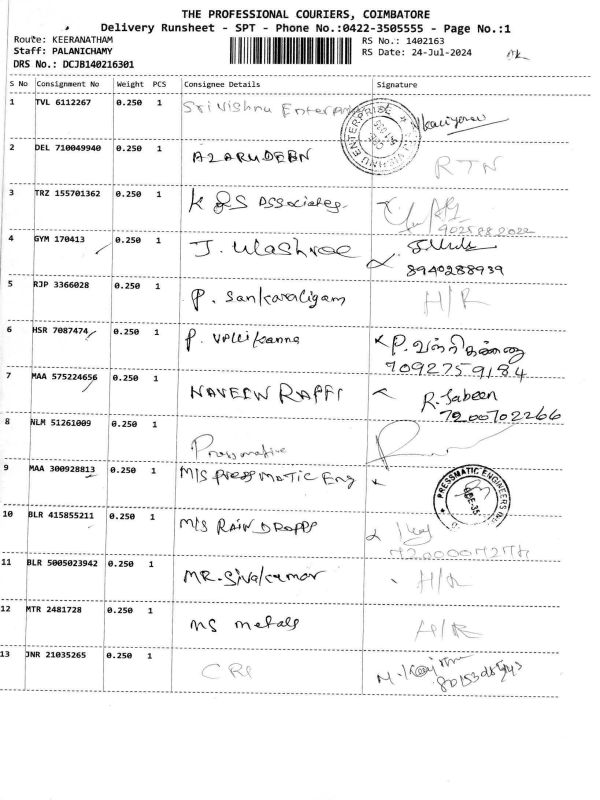 THE PROFESSIONAL COURIERS, COIMBATORE
Delivery Runsheet - SPT - Phone No.:0422-3505555 - Page No.:1
Route: KEERANATHAM
RS No.: 1402163
Staff: PALANICHAMY
RS Date: 24-Jul-2024
DRS No.: DCJB140216301
S No Consignment No Weight PCS Consignee Details Signature
1 TVL 6112267 0.250 1 Sri Vishnu
2 DEL 710049940 0.250 1 AZARUDEEN RTN
3 TRZ 155701362 0.250 1 K &S Associates.
9025882022
4 GYM 170413 0.250 1 J.
8940288939
5 RJP 3366028 0.250 1 P. Sankaraligam H/R
6 HSR 7087474 0.250 1 P. Vallikanna P.
7092759184
7 MAA 575224656 0.250 1 NAVEEN R. Jabeen
7200702266
8 NLM 51261009 0.250 1 Pressmative
9 MAA 300928813 0.250 1 M/S PressMATIC Eng
PRESSMATIC ENGINEERS
CBE-35
10 BLR 415855211 0.250 1 M/S RAIN DROPPS
11 BLR 5005023942 0.250 1 MR. Sivakumar H/R
12 MTR 2481728 0.250 1 MS metals H/R
13 JNR 21035265 0.250 1 CRI